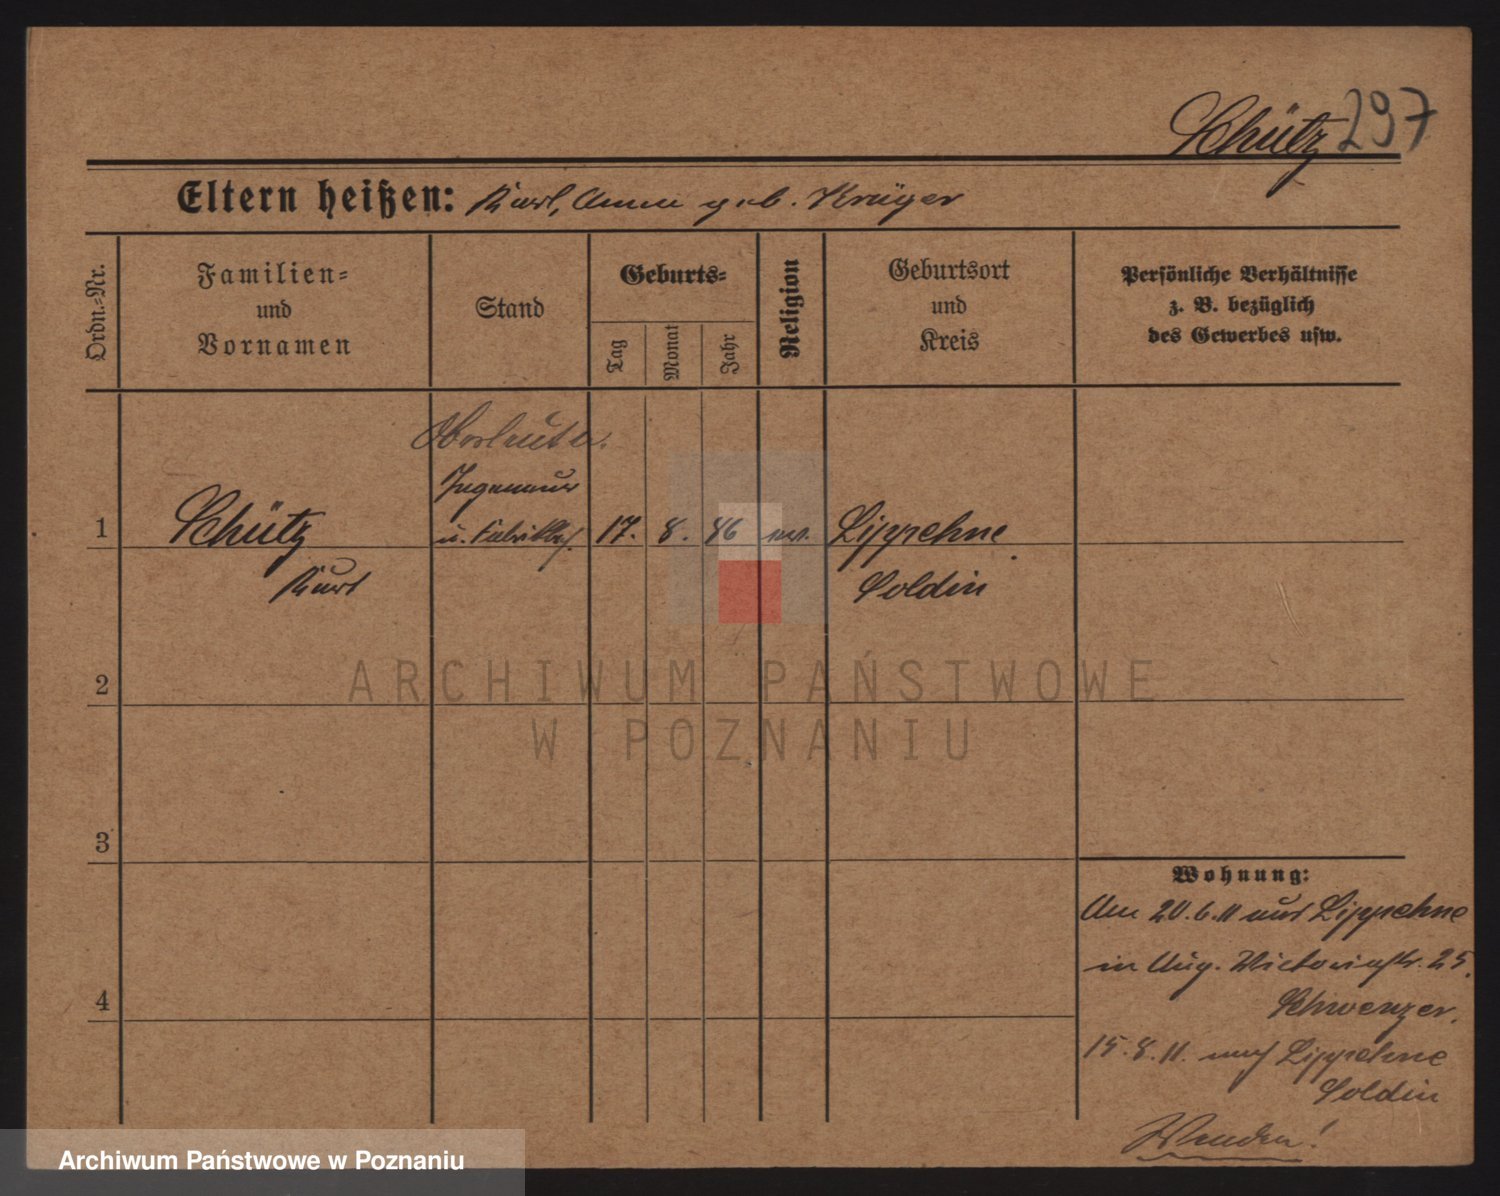 Schütz 297
Eltern heißen: Karl, Anna geb. Krüger
Ordn.=Nr.
Familien=
und
Vornamen
Stand
Geburts=
Tag
Monat
Jahr
Religion
Geburtsort
und
Kreis
Persönliche Verhältnisse
z. B. bezüglich
des Gewerbes usw.
Oberleutn.
Ingenieur
1 Schütz u. Fabrikbes. 17. 8. 86 ev. Lippehne
Kurt Soldin
2
ARCHIWUM PAŃSTWOWE
W POZNANIU
3
Wohnung:
Am 20.6.11 aus Lippehne
in Aug. Victoriastr. 25.
4
Schwenzer.
15.8.11. nach Lippehne
Soldin
Wenden!
Archiwum Państwowe w Poznaniu